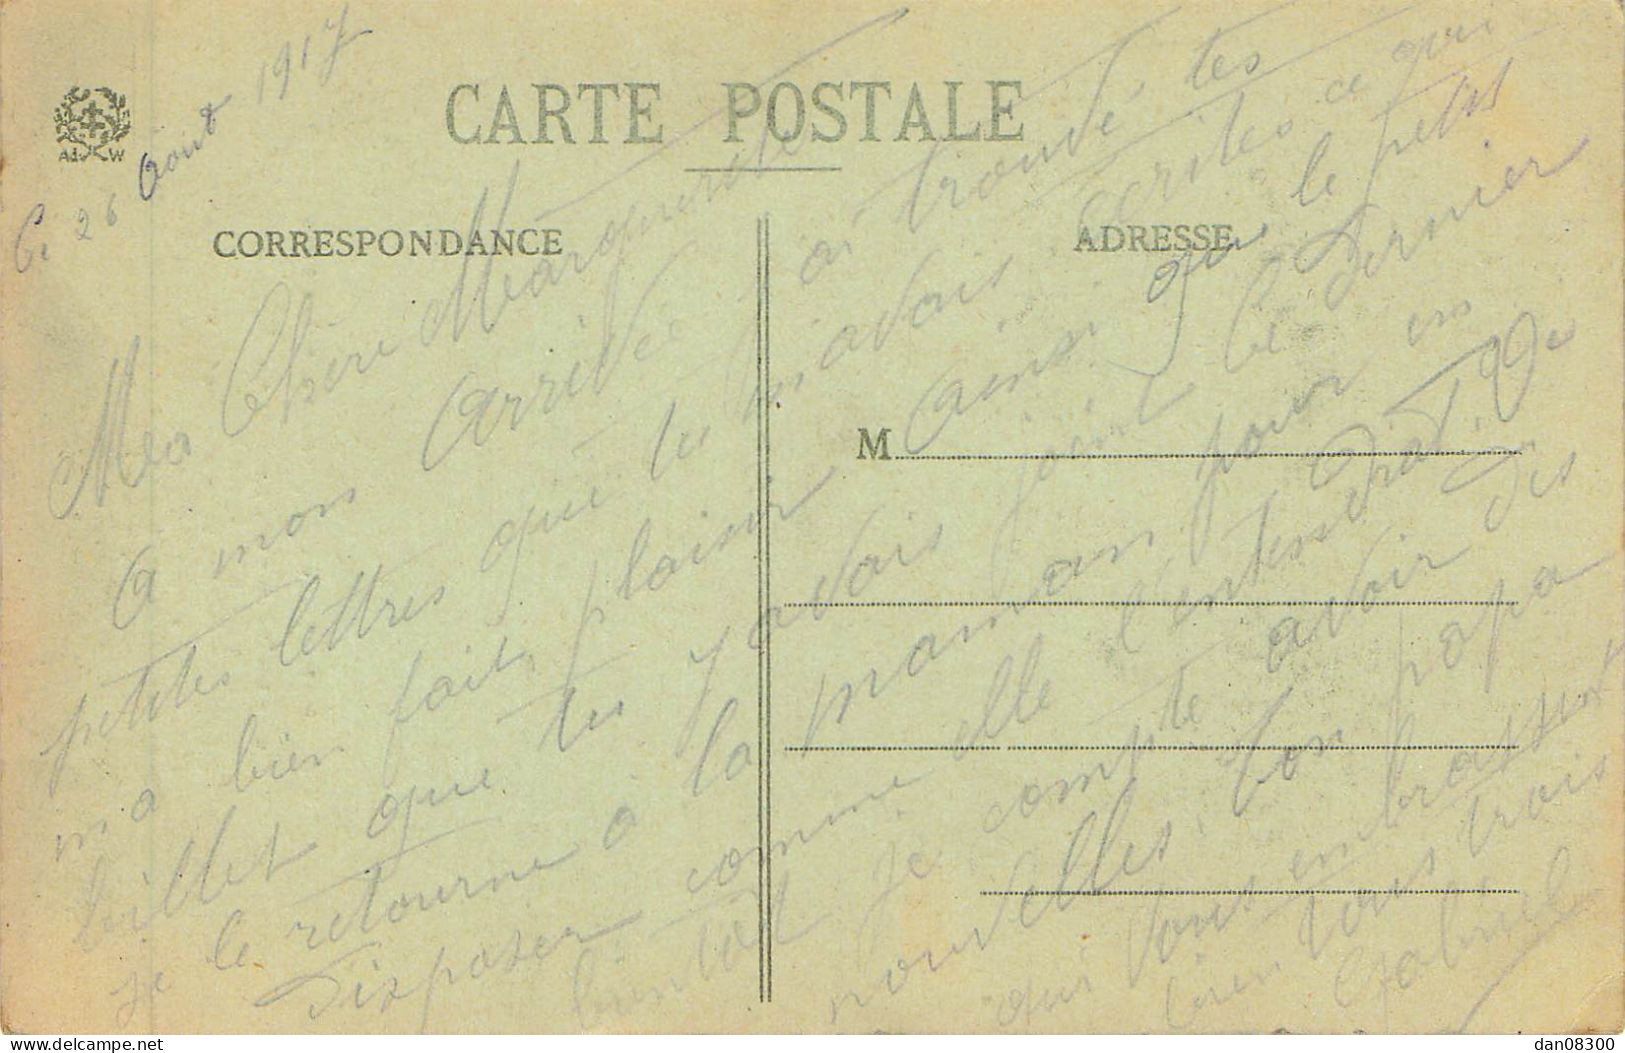 CARTE POSTALE
CORRESPONDANCE
ADRESSE
M
Ce 26 Aout 1917
Ma Chère Marguerite
A mon arrivée ai trouvé tes
petites lettres que tu m'avais écrites ce qui
m'a bien fait plaisir ainsi que le petit
billet que tu y avais joint Ce dernier
je le retourne à la maman pour en
disposer comme elle l'entendrat. De
bientôt Je compte avoir des
nouvelles Ton papa
qui vous embrasse
bien tous trois
Gabriel
AW
delcampe.net
dan08300